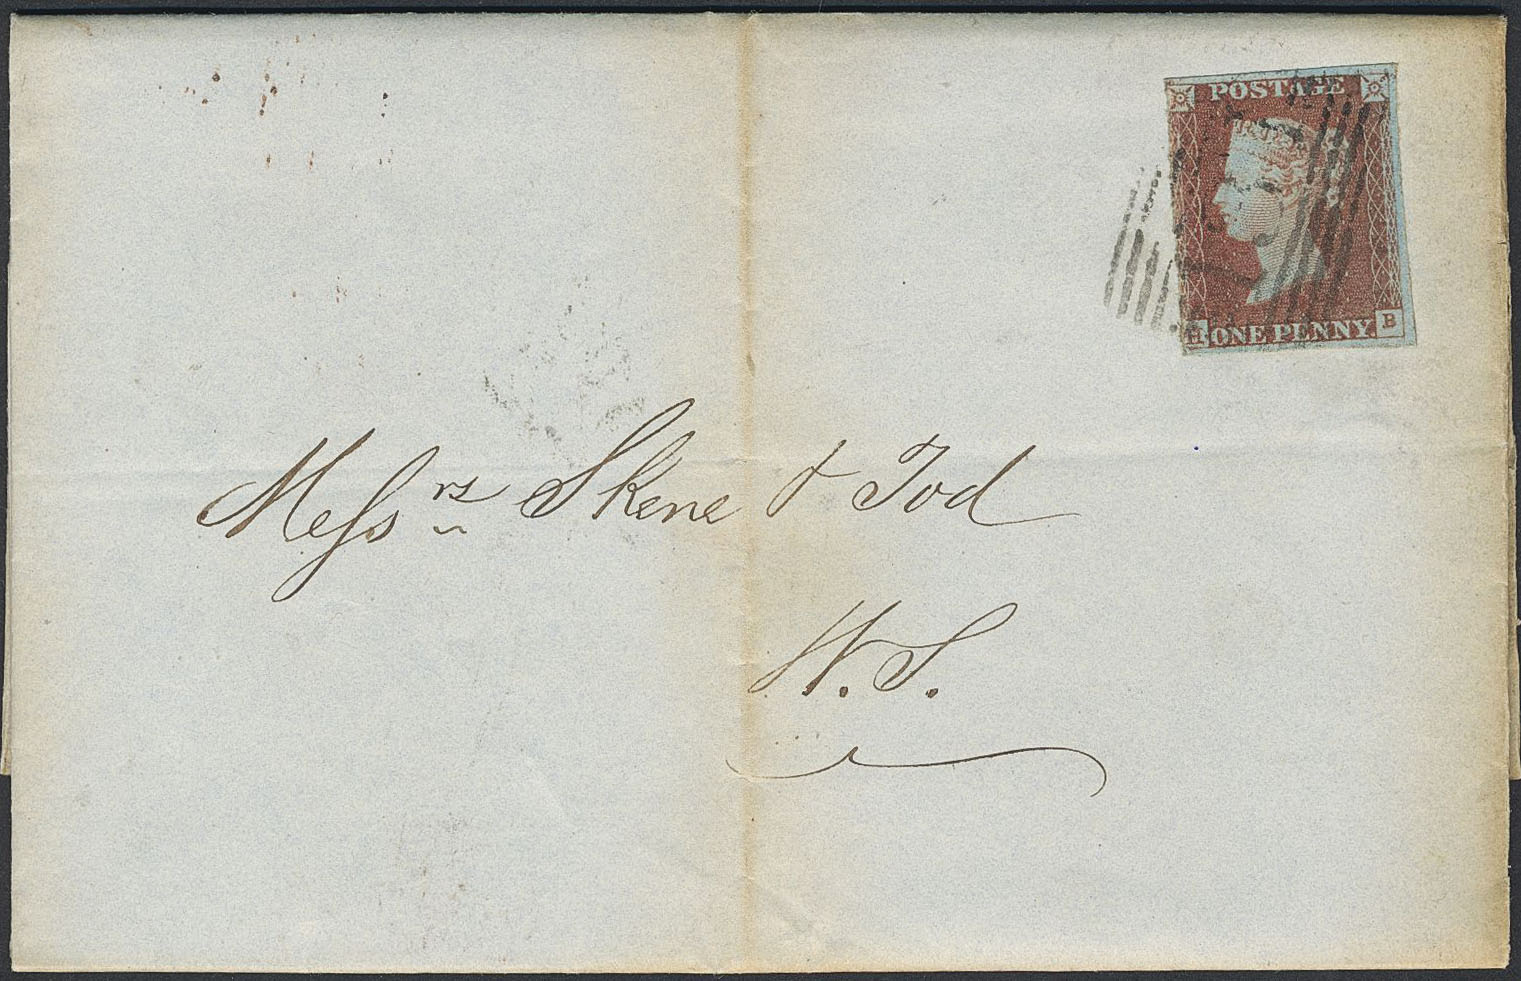 POSTAGE
H ONE PENNY B
Messrs Skene & Tod
W. S.